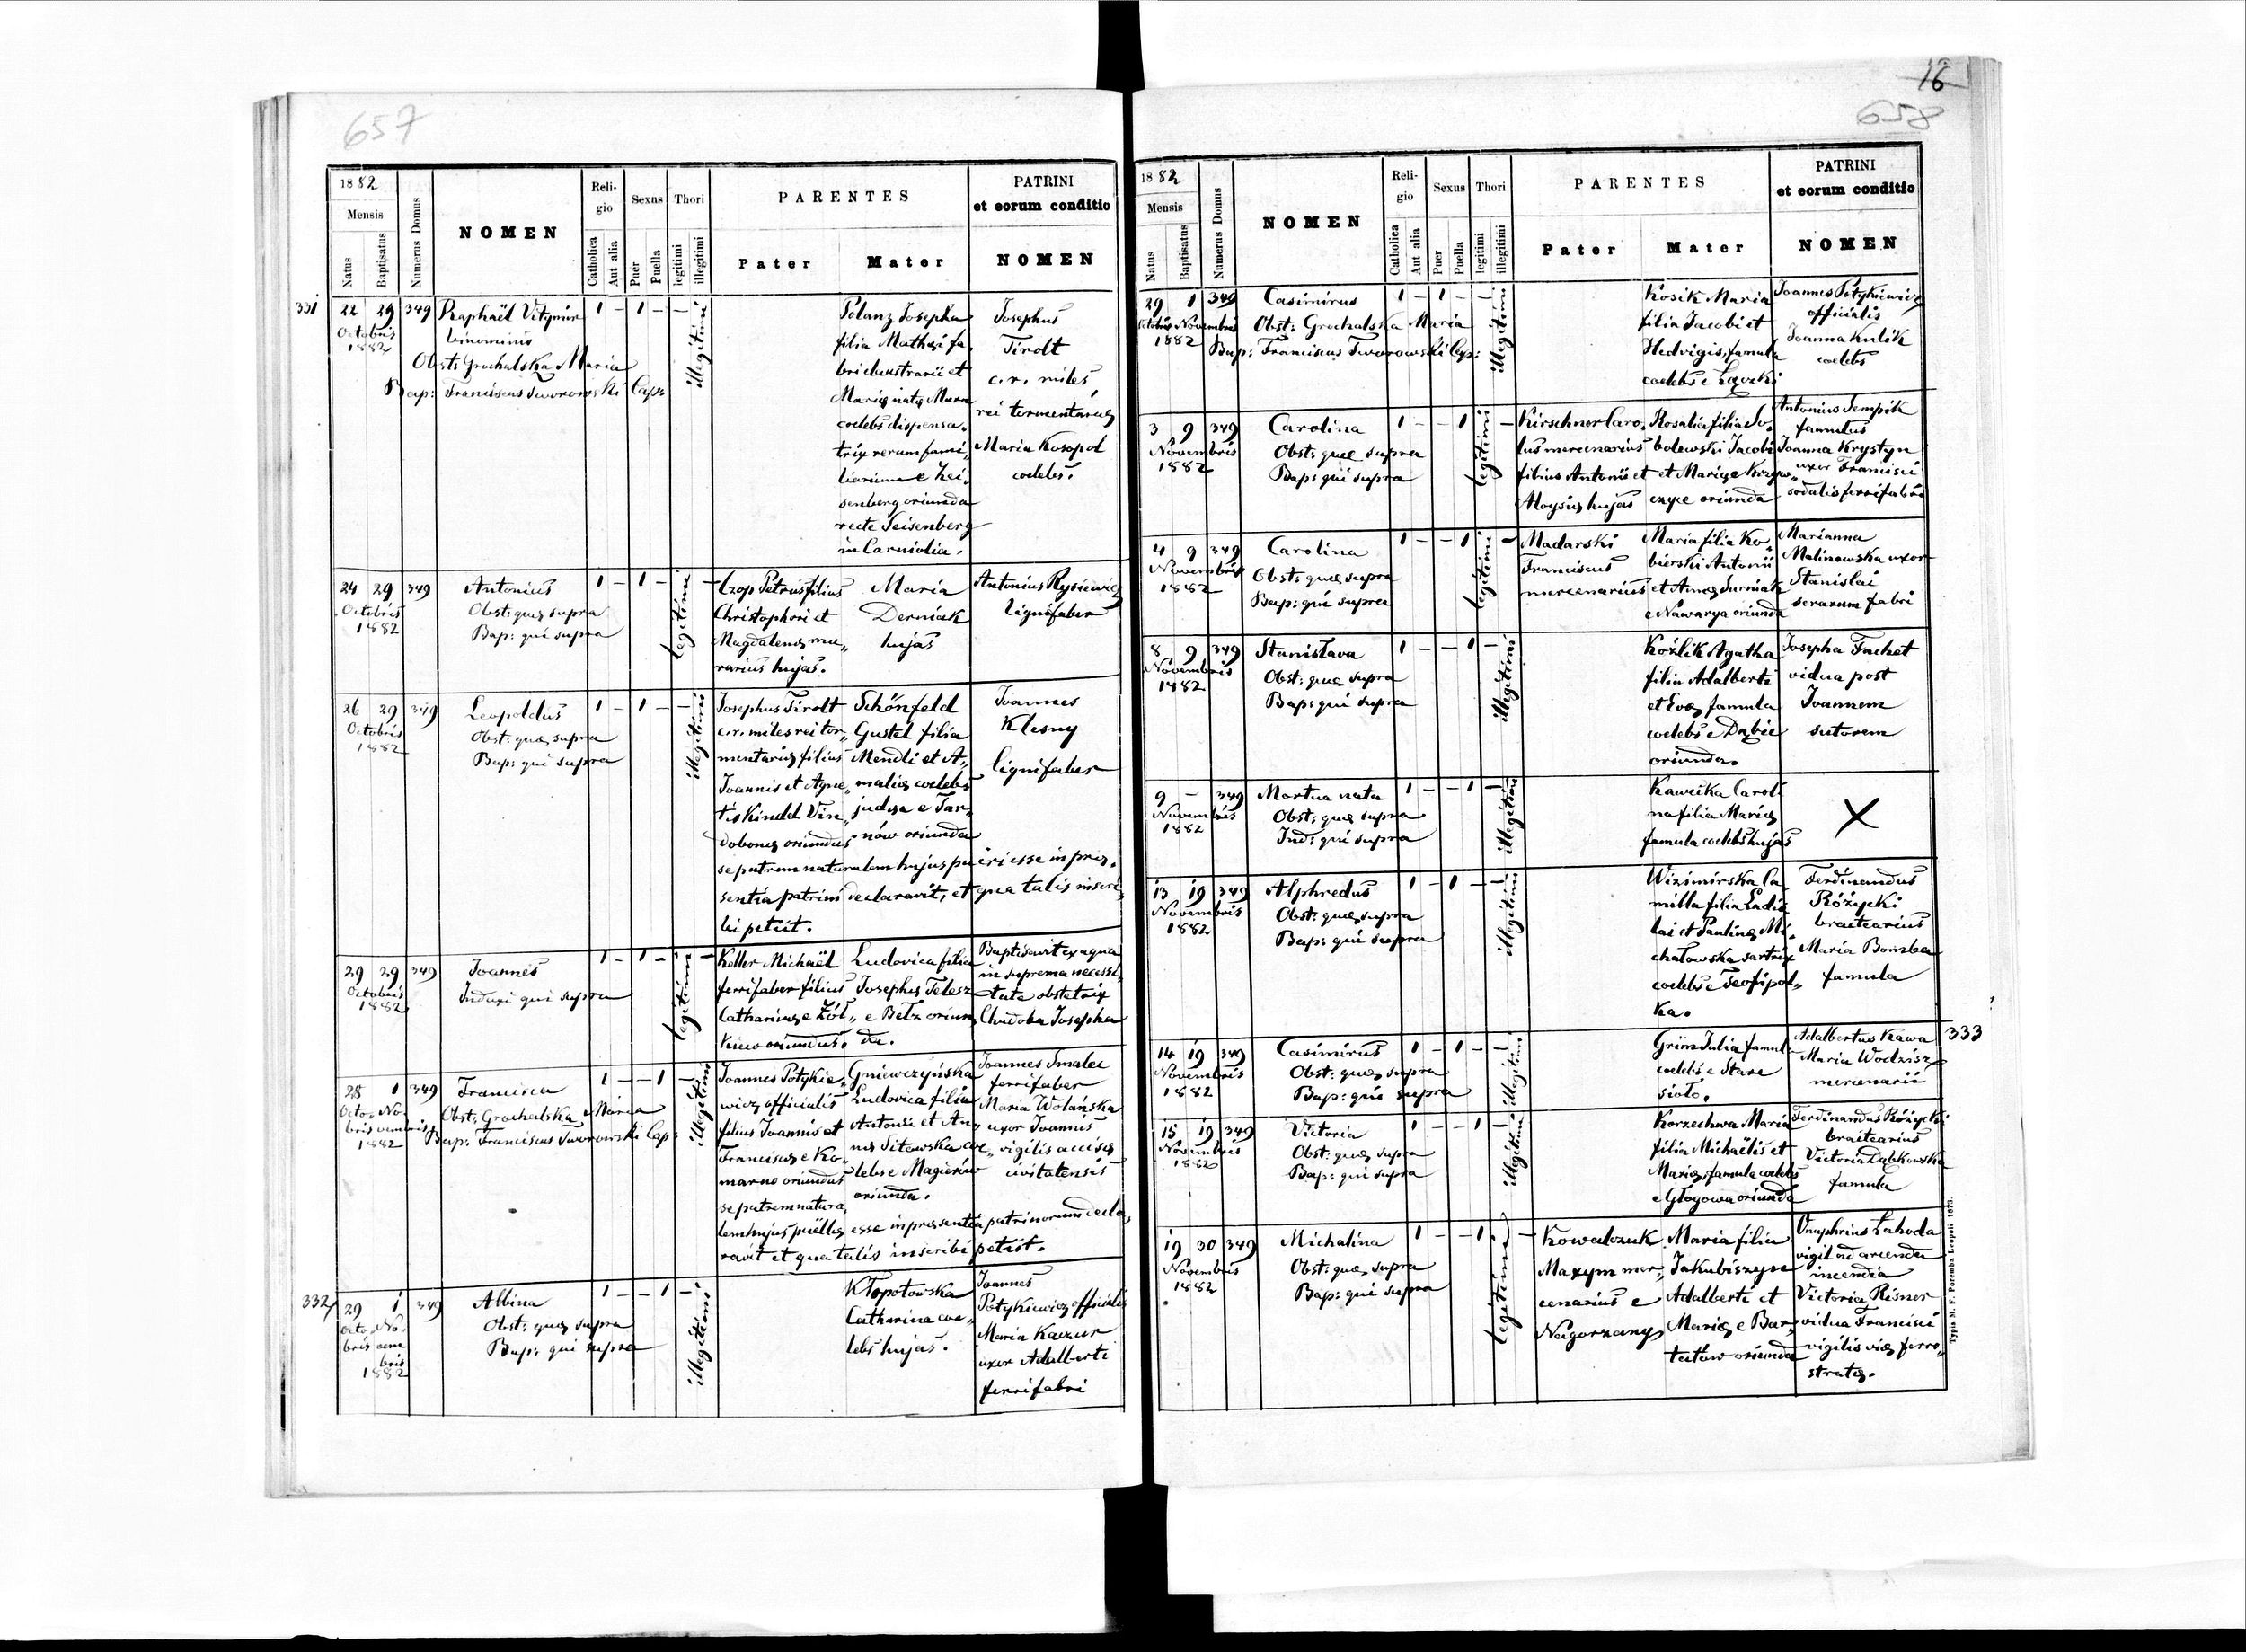 657
1882
Mensis
Natus
Baptisatus
Numerus Domus
NOMEN
Reli-
gio
Catholica
Aut alia
Sexus
Puer
Puella
Thori
legitimi
illegitimi
PARENTES
Pater
Mater
PATRINI
et eorum conditio
NOMEN
331
22 29 349
Octobris
1882
Raphaël
binominis
Obst: Grochalska Maria
Bap: Franciscus Tworowski Cap:
1 – 1 – –
illegitimi
Polanz Josepha
filia Mathæi fa
bri claustrarii et
Mariæ natæ
coelebs dispensa-
trix rerum fami„
liarium e Zei„
senberg oriunda
recte Seisenberg
in Carniolia.
Josephus
Tirolt
c.r. miles
rei tormentariæ
Maria Kosopol
coelebs.
24 29 349
Octobris
1882
Antonius
Obst: quæ supra
Bap: qui supra
1 – 1 – –
legitimi
Czop Petrus filius
Christophori et
Magdalenæ mu„
rarius hujas.
Maria
Derniak
hujas
Antonius Rysiewicz
lignifaber
26 29 349
Octobris
1882
Leopoldus
Obst: quæ supra
Bap: qui supra
1 – 1 – –
illegitimi
Josephus Tirolt
c.r. miles rei tor„
mentariæ filius
Joannis et Agne„
tis Kindel Vin„
dobonæ oriundus
Schönfeld
Gustel filia
Mendli et A„
maliæ coelebs
judæa e Tar„
nów oriunda
se patrem naturalem hujus pueri esse in præ„
sentia patrini declaravit, et qua talis inscri„
bi petiit.
Joannes
Klesny
lignifaber
29 29 349
Octobris
1882
Joannes
Induxi qui supra
1 – 1 – –
legitimi
Keller Michaël
ferrifaber filius
Catharinæ e Żół„
kiew oriundus.
Ludovica filia
Josephæ Telesz
e Bełz oriun„
da.
Baptisavit ex aqua
in suprema necessi„
tate obstetrix
Chudoba Josepha
28 1 349
Octo„ No„
bris vembris
1882
Francisca
Obst: Grochalska Maria
Bap: Franciscus Tworowski Cap:
1 – – 1 –
illegitimi
Joannes Potykie„
wicz officialis
filius Joannis et
Franciscæ e Ko„
marno oriundus
se patrem natura„
Gniewczyńska
Ludovica filia
Antonii et An„
næ Sitowska coe„
lebs e Magierów
oriunda.
lem hujus puellæ esse in præsentia patrinorum decla„
ravit et qua talis inscribi petiit.
Joannes Smalec
ferrifaber
Maria Wolańska
uxor Joannis
vigilis accisæ
civitatensis
332
29 1 349
Octo„ No„
bris vem
bris
1882
Albina
Obst: quæ supra
Bap: qui supra
1 – – 1 –
illegitimi
Kłopotowska
Catharina coe„
lebs hujas.
Joannes
Potykiewicz officialis
Maria Kaczur
uxor Adalberti
ferrifabri
16
658
1882
Mensis
Natus
Baptisatus
Numerus Domus
NOMEN
Reli-
gio
Catholica
Aut alia
Sexus
Puer
Puella
Thori
legitimi
illegitimi
PARENTES
Pater
Mater
PATRINI
et eorum conditio
NOMEN
29 1 349
Octobris Novembris
1882
Casimirus
Obst: Grochalska Maria
Bap: Franciscus Tworowski Cap:
1 – 1 – –
illegitimi
Kosik Maria
filia Jacobi et
Hedvigis, famula
coelebs e
Joannes Potykiewicz
officialis
Joanna Kulik
coelebs
3 9 349
Novembris
1882
Carolina
Obst: quæ supra
Bap: qui supra
1 – – 1 –
legitimi
Kirschner Caro„
lus mercenarius
filius Antonii et
Aloysiæ hujas
Rosalia filia So„
bolewski Jacobi
et Mariæ e Krzyw„
czyce oriunda
Antonius Sempik
famulus
Joanna Krystyn
uxor Francisci
sodalis ferrifabri
4 9 349
Novembris
1882
Carolina
Obst: quæ supra
Bap: qui supra
1 – – 1 –
legitimi
Madarski
Franciscus
mercenarius
Maria filia Ko„
bierski Antonii
et Annæ Surniak
e Nawarya oriunda
Marianna
Malinowska uxor
Stanislai
serarum fabri
8 9 349
Novembris
1882
Stanisłava
Obst: quæ supra
Bap: qui supra
1 – – 1 –
illegitimi
Koźlik Agatha
filia Adalberti
et Evæ famula
coelebs e Dąbie
oriunda.
Josepha Fuchet
vidua post
Joannem
sutorem
9 – 349
Novembris
1882
Mortua nata
Obst: quæ supra
Ind: qui supra
1 – – 1 –
illegitimi
Kawecka Caroli
na filia Mariæ
famula coelebs hujas
X
13 19 349
Novembris
1882
Alphredus
Obst: quæ supra
Bap: qui supra
1 – 1 – –
illegitimi
Wizimirska Ca„
milla filia Ladis
lai et Paulinæ Mi„
chałowska sartrix
coelebs e Teofipol„
ka.
Ferdinandus
Różycki
braitearius
Maria Bomba
famula
333
14 19 349
Novembris
1882
Casimirus
Obst: quæ supra
Bap: qui supra
1 – 1 – –
illegitimi
Grün Julia famula
coelebs e Stare
sioło.
Adalbertus Kawa
Maria Wodzisz
mercenarii
15 19 349
Novembris
1882
Victoria
Obst: quæ supra
Bap: qui supra
1 – – 1 –
illegitimi
Korzechwa Maria
filia Michaëlis et
Mariæ, famula coelebs
e Głogowa oriunda
Ferdinandus Różycki
braitearius
Victoria Dąbkowska
famula
19 30 349
Novembris
1882
Michalina
Obst: quæ supra
Bap: qui supra
1 – – 1 –
legitimi
Kowalczuk
Maxym mer„
cenarius e
Nagorzany
Maria filia
Jakubiszyn
Adalberti et
Mariæ e Bar„
tatów oriunda
Onuphrius Lahoda
vigil ad arcenda
incendia
Victoria Risner
vidua Francisci
vigilis viæ ferro„
stratæ.
Typis M. F. Poremba Leopoli 1873.